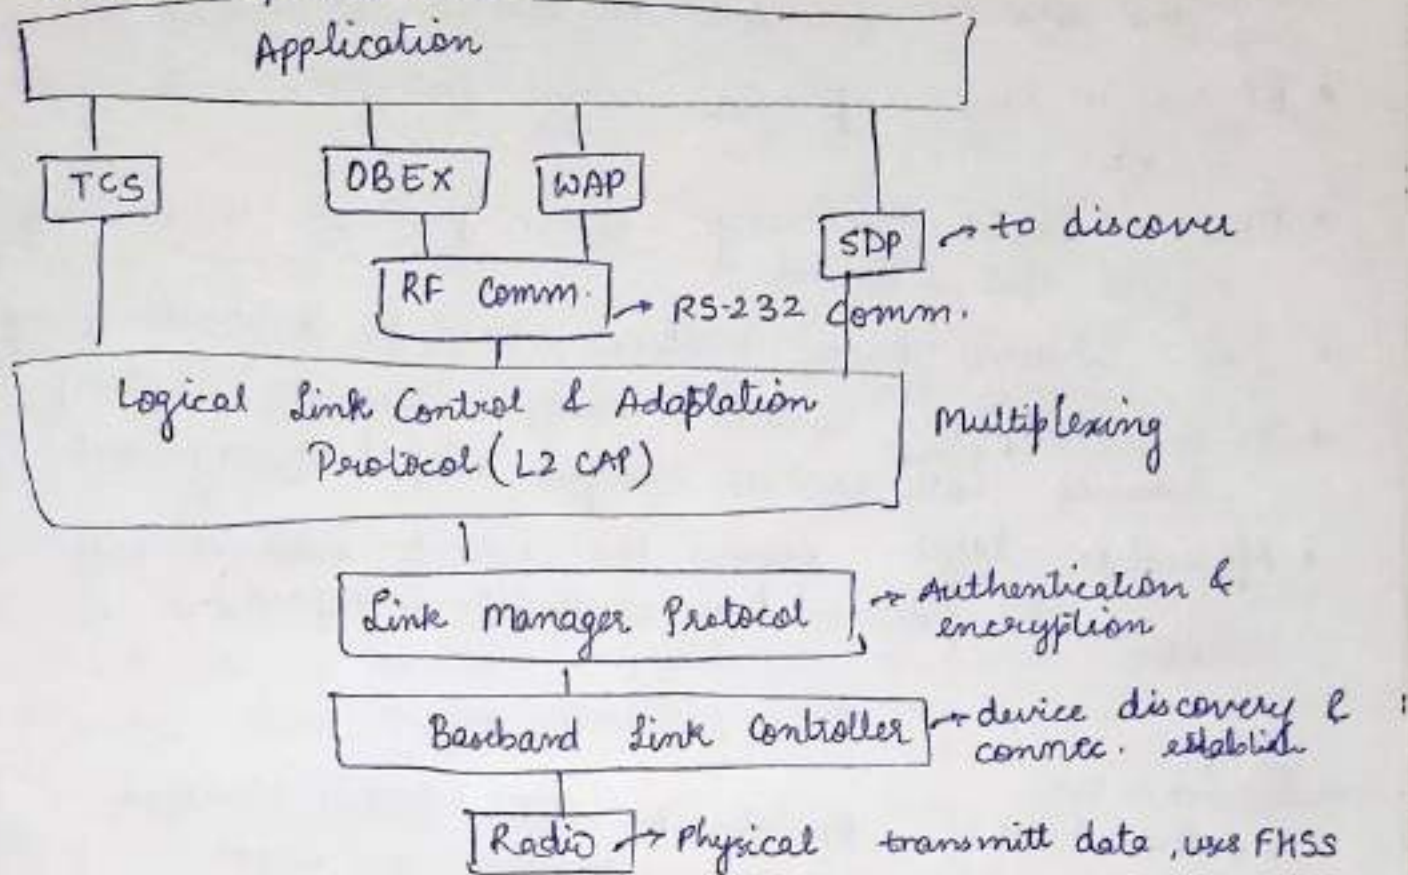 Application
TCS
OBEX
WAP
SDP → to discover
RF Comm. → RS-232 Comm.
Logical Link Control & Adaptation
Protocol (L2 CAP)
Multiplexing
Link Manager Protocol → Authentication &
encryption
Baseband Link Controller → device discovery &
connec. establish
Radio → Physical transmitt data, uses FHSS